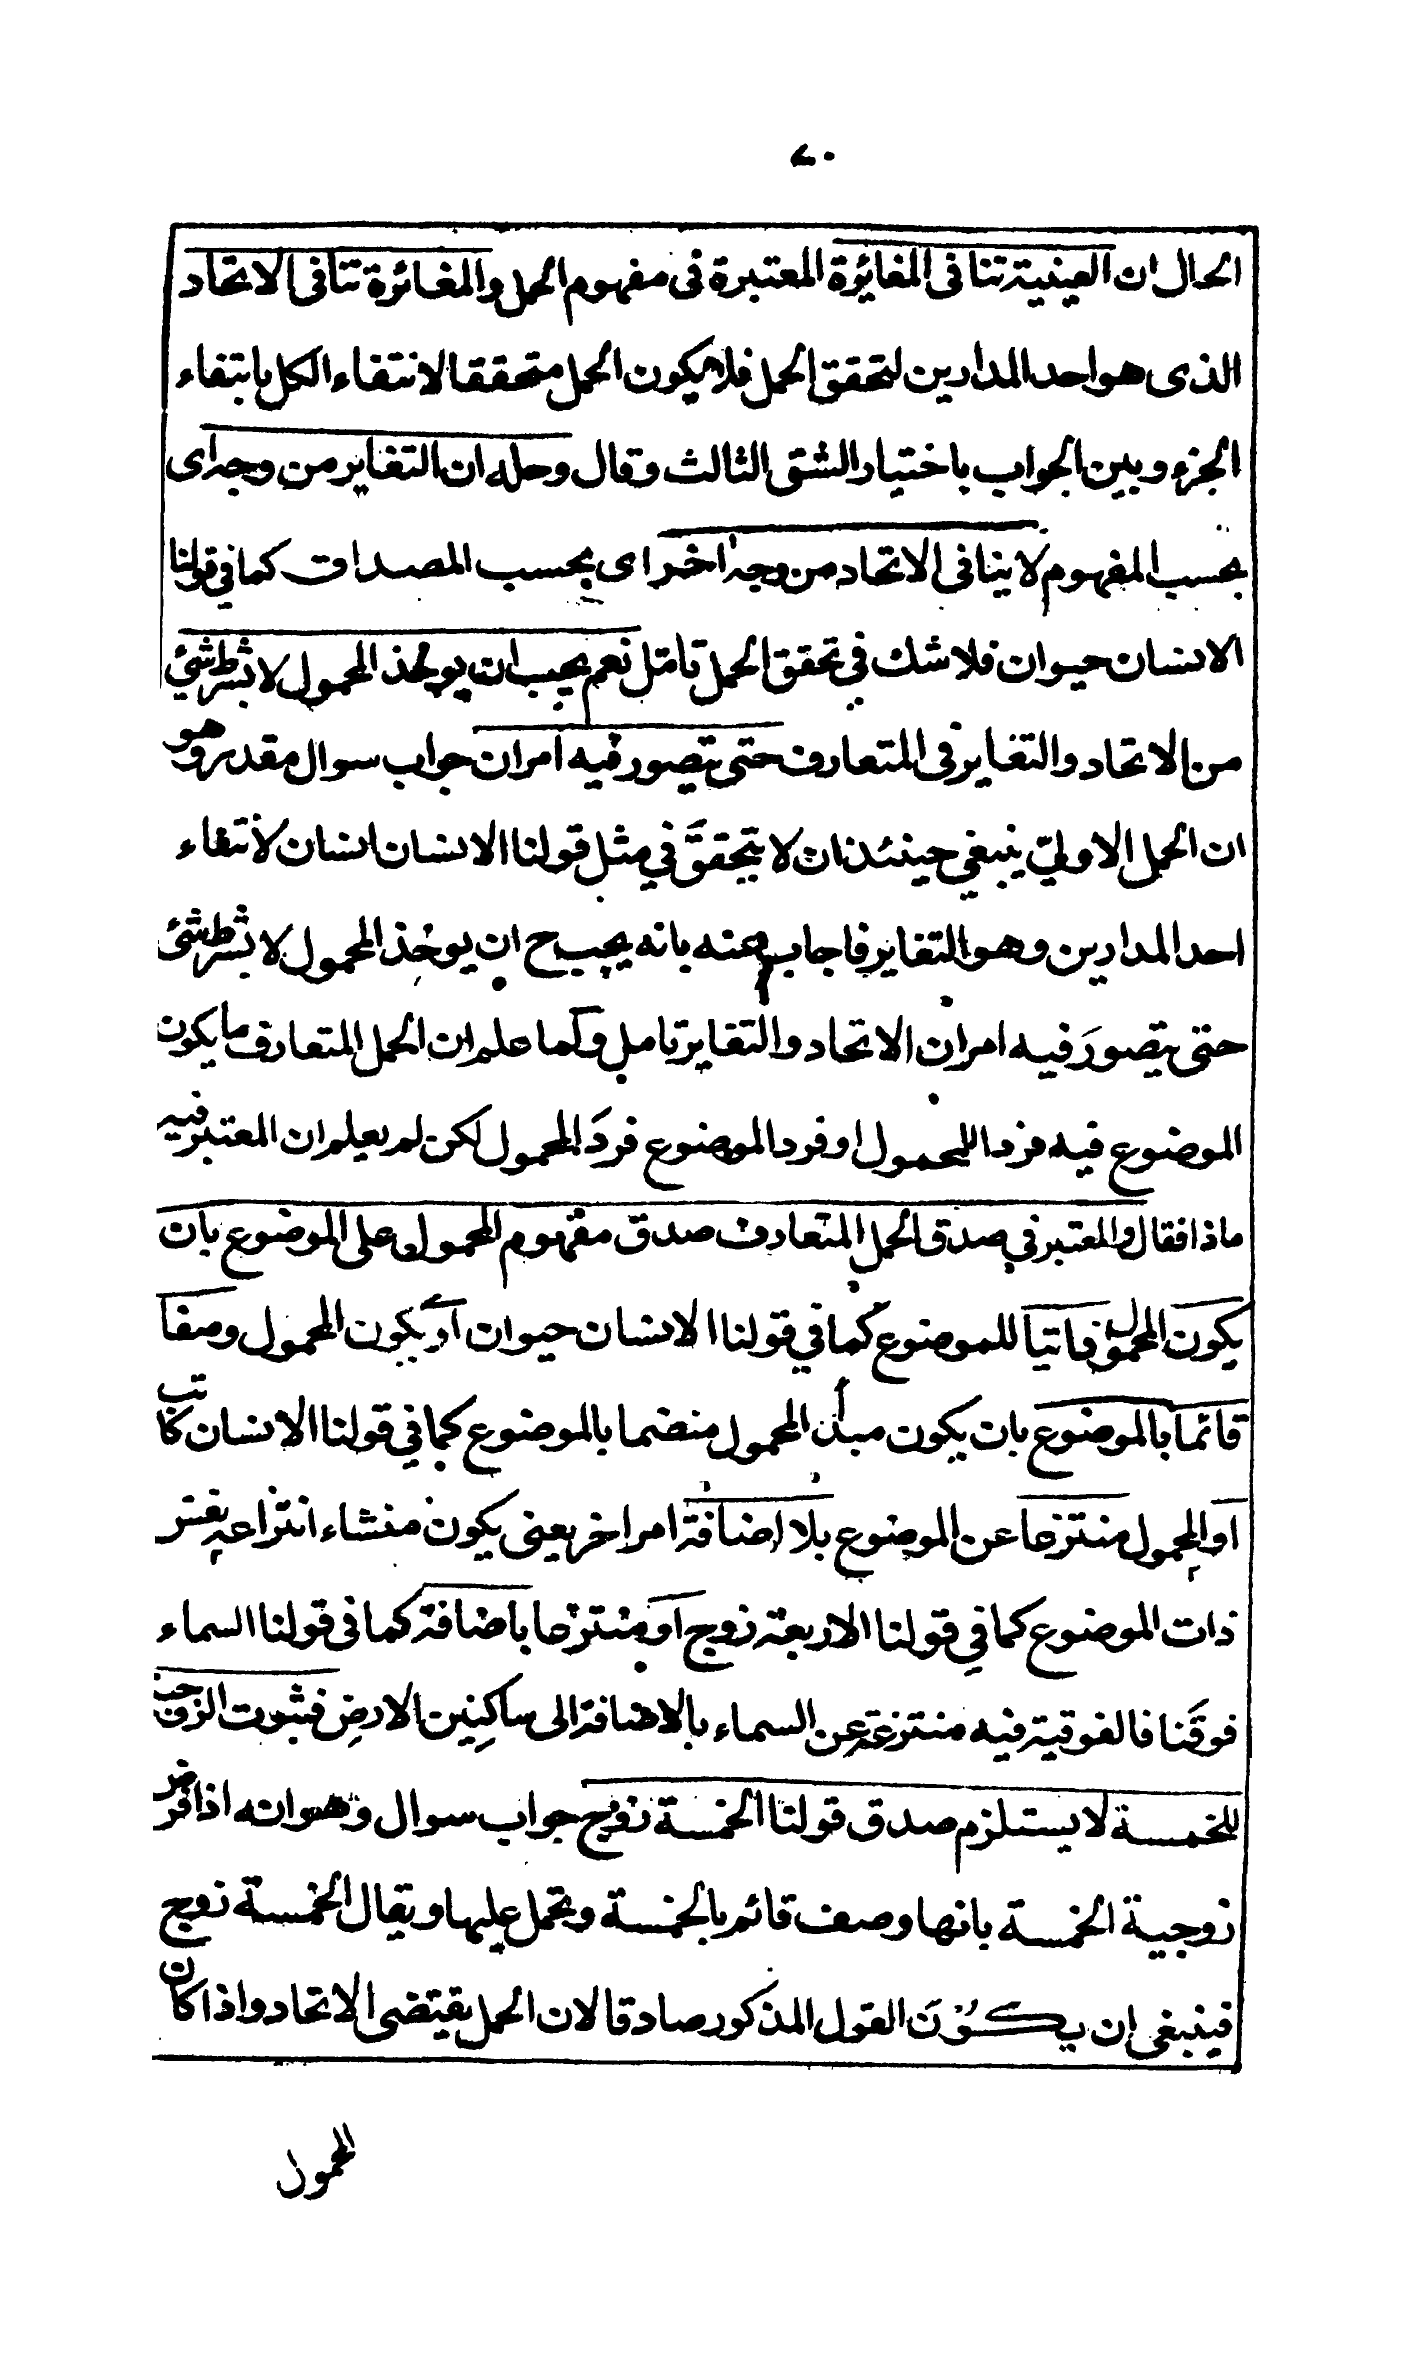 ٧٠
الحال ان العينية تنافى المغائرة المعتبرة فى مفهوم الحمل والمغائرة تنافى الاتحاد
الذى هو احد المدارين لتحقق الحمل فلا يكون الحمل متحققا لانتفاء الكل بانتفاء
الجزء وبين الجواب باختيار الشق الثالث وقال وحله ان التغاير من وجه اى
بحسب المفهوم لا ينافى الاتحاد من وجه اخر اى بحسب المصداق كما في قولنا
الانسان حيوان فلا شك في تحقق الحمل تامل نعم يجب ان يوخذ المحمول لا بشرط شئ
من الاتحاد والتغاير فى المتعارف حتى يتصور فيه امران جواب سوال مقدر وهو
ان الحمل الاوليّ ينبغي حينئذ ان لا يتحقق في مثل قولنا الانسان انسان لانتفاء
احد المدارين وهو التغاير فاجاب عنه بانه يجب ح ان يوخذ المحمول لا بشرط شئ
حتى يتصور فيه امران الاتحاد والتغاير تامل وكما علم ان الحمل المتعارف ما يكون
الموضوع فيه فردا للمحمول او فرد الموضوع فردَ المحمول لكن لم يعلم ان المعتبر فيه
ماذا فقال والمعتبر في صدق الحمل المتعارف صدق مفهوم المحمول على الموضوع بان
يكون المحمول ذاتيا للموضوع كما في قولنا الانسان حيوان او يكون المحمول وصفا
قائما بالموضوع بان يكون مبدأ المحمول منضما بالموضوع كما في قولنا الانسان كاتب
او المحمول منتزعا عن الموضوع بلا اضافة امرا خر يعنى يكون منشاء انتزاعه نفس
ذات الموضوع كما في قولنا الاربعة زوج او منتزعا باضافة كما فى قولنا السماء
فوقَنا فالفوقية فيه منتزعة عن السماء بالاضافة الى ساكِنِين الارضِ فثبوت الزوجية
للخمسة لا يستلزم صدق قولنا الخمسة زوج جواب سوال وهو انه اذا فرض
زوجية الخمسة بانها وصف قائم بالخمسة وتحمل عليها ويقال الخمسة زوج
فينبغى ان يكُوْنَ القول المذكور صادقا لان الحمل يقتضى الاتحاد واذا كان
المحمول